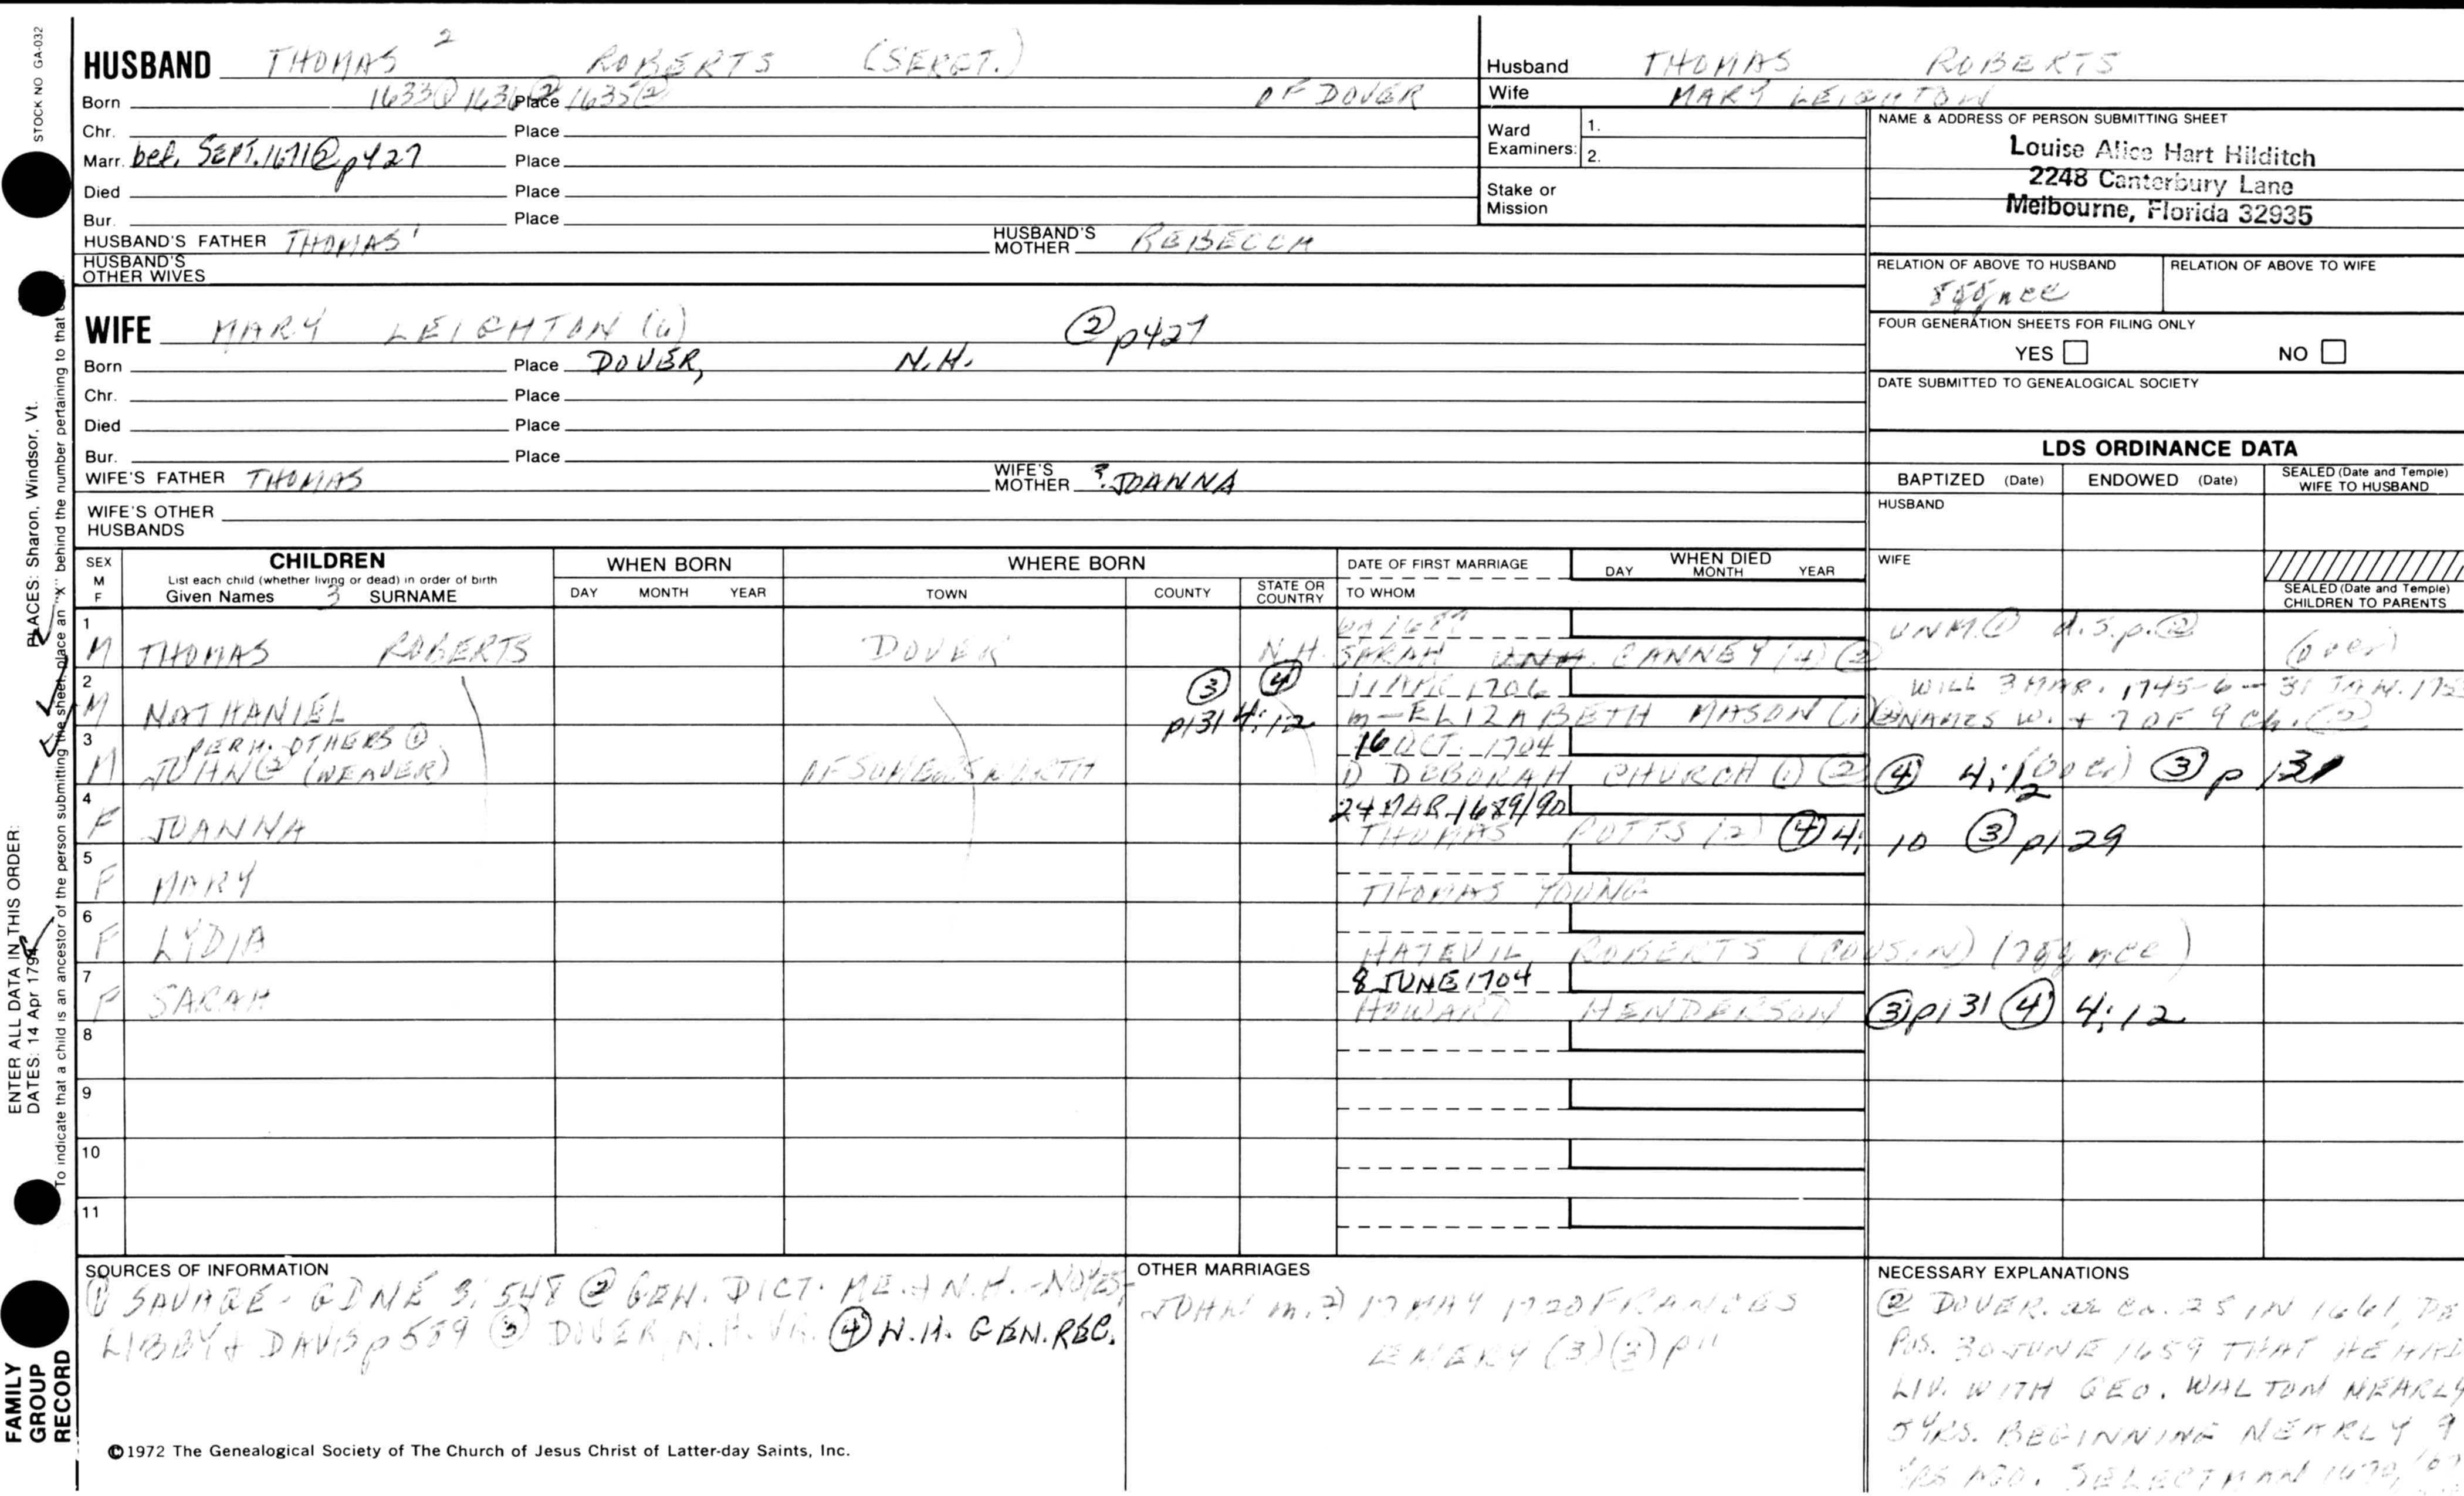 STOCK NO GA-032
HUSBAND THOMAS 2 ROBERTS (SERGT.)
Born 1633① 1636② Place 1635② OF DOVER
Chr. Place
Marr. bef. SEPT. 1671② p427 Place
Died Place
Bur. Place
HUSBAND'S FATHER THOMAS 1 HUSBAND'S MOTHER REBECCA
HUSBAND'S OTHER WIVES
Husband THOMAS ROBERTS
Wife MARY LEIGHTON
Ward Examiners: 1.
2.
Stake or Mission
NAME & ADDRESS OF PERSON SUBMITTING SHEET
Louise Alice Hart Hilditch
2248 Canterbury Lane
Melbourne, Florida 32935
RELATION OF ABOVE TO HUSBAND RELATION OF ABOVE TO WIFE
FOUR GENERATION SHEETS FOR FILING ONLY
YES NO
DATE SUBMITTED TO GENEALOGICAL SOCIETY
WIFE MARY LEIGHTON ② p427
Born Place DOVER, N.H.
Chr. Place
Died Place
Bur. Place
WIFE'S FATHER THOMAS WIFE'S MOTHER ?JOANNA
WIFE'S OTHER HUSBANDS
LDS ORDINANCE DATA
BAPTIZED (Date) ENDOWED (Date) SEALED (Date and Temple) WIFE TO HUSBAND
HUSBAND
WIFE
SEALED (Date and Temple) CHILDREN TO PARENTS
SEX M F CHILDREN List each child (whether living or dead) in order of birth Given Names 3 SURNAME
WHEN BORN DAY MONTH YEAR
WHERE BORN TOWN COUNTY STATE OR COUNTRY
DATE OF FIRST MARRIAGE TO WHOM
WHEN DIED DAY MONTH YEAR
1 M THOMAS ROBERTS DOVER N.H. 1689 SARAH CANNEY (4) ② UNM.① d.s.p.② (over)
2 M NATHANIEL ③ p131 ④ 4:12 11 APR 1706 m-ELIZABETH MASON WILL 3 MAR. 1745-6 - 31 JAN. NAMES W. + 7 OF 9 Ch. ②
3 PERH. OTHERS ①
M JOHN② (WEAVER) OF SOMERSWORTH 16 OCT. 1704 1) DEBORAH CHURCH ① ② ④ 4:12 (over) ③ p 131
4 F JOANNA 24 MAR. 1689/90 THOMAS POTTS (2) ④ 4:10 ③ p129
5 F MARY THOMAS YOUNG
6 F LYDIA HATEVIL ROBERTS (COUSIN)
7 F SARAH 8 JUNE 1704 HOWARD HENDERSON ③ p131 ④ 4:12
8
9
10
11
SOURCES OF INFORMATION
① SAVAGE - GDNE 3:548 ② GEN. DICT. ME. + N.H. - NOYES,
LIBBY + DAVIS p 589 ③ DOVER, N.H. VR. ④ N.H. GEN. REC.
OTHER MARRIAGES
JOHN m. 2) 17 MAY 1720 FRANCES
EMERY (3)
NECESSARY EXPLANATIONS
② DOVER. ae ca. 25 IN 1661, DE
POS. 30 JUNE 1659 THAT HE HAD
LIV. WITH GEO. WALTON NEARLY
5 YRS. BEGINNING NEARLY 9
YRS AGO. SELECTMAN
©1972 The Genealogical Society of The Church of Jesus Christ of Latter-day Saints, Inc.
FAMILY GROUP RECORD
ENTER ALL DATA IN THIS ORDER:
DATES: 14 Apr 1794 PLACES: Sharon, Windsor, Vt.
To indicate that a child is an ancestor of the person submitting the sheet, place an "x" behind the number pertaining to that